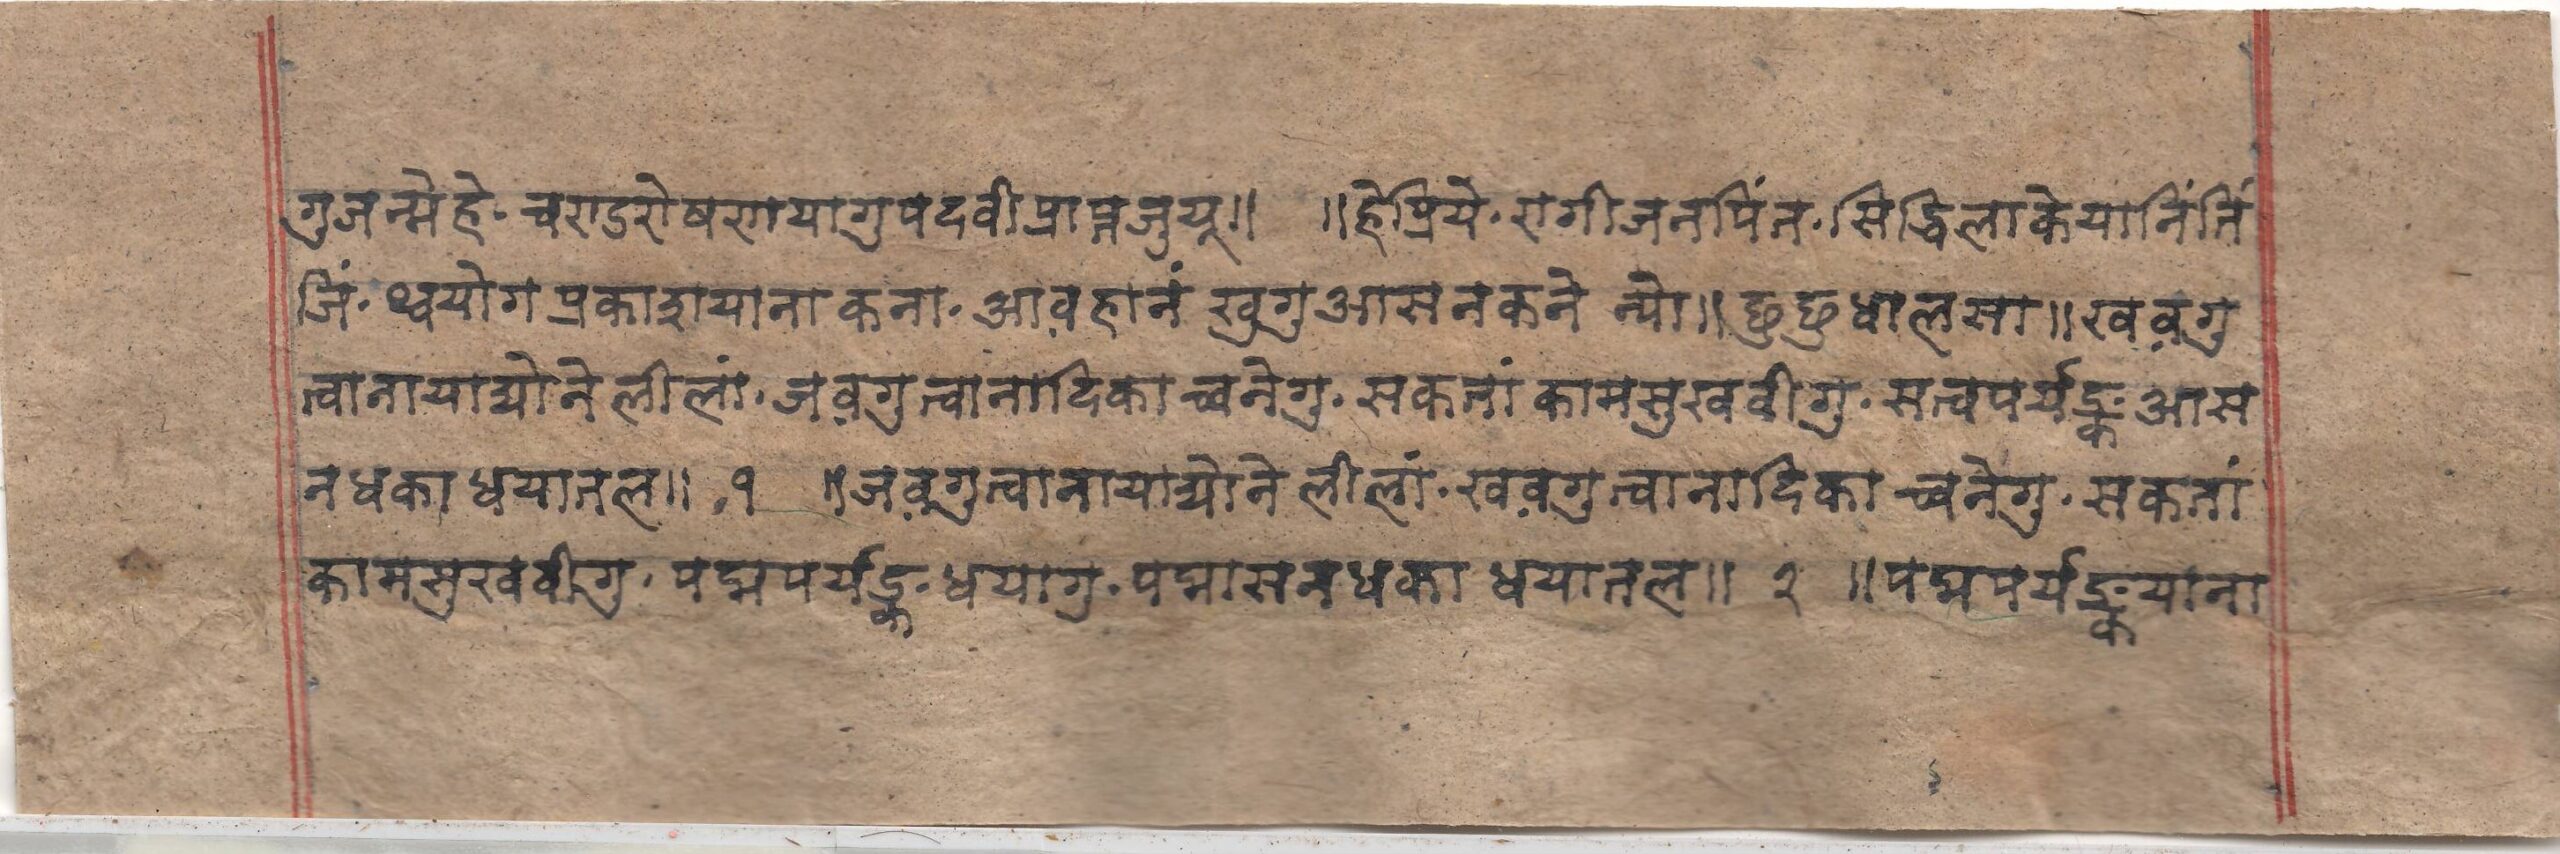 गुजन्मेहे॰ चराडरोषरायागुपदवीप्राप्तजुयू॥ ॥हेप्रिये॰ रागीजनपिंत॰ सिद्धिलाकेयानिंतिं
जिं॰ थ्वयोगप्रकाशयानाकना॰ आव़हानं खुगुआसनकने न्यो॥ छुछुधालसा॥ खव़गु
त्वानायाद्योनेलीलां॰ जव़गुत्वानादिकाच्वनेगु॰ सकतांकामसुखवीगु॰ सत्वपर्यङ्कआस
नधकाधयातल॥ १ ॥जव़गुत्वानायाद्योनेलीलां॰ खव़गुत्वानादिकाच्वनेगु॰ सकतां
कामसुखवीगु॰ पद्मपर्यङ्क॰ धयागु॰ पद्मासनधकाधयातल॥ २ ॥पद्मपर्यङ्कयाना